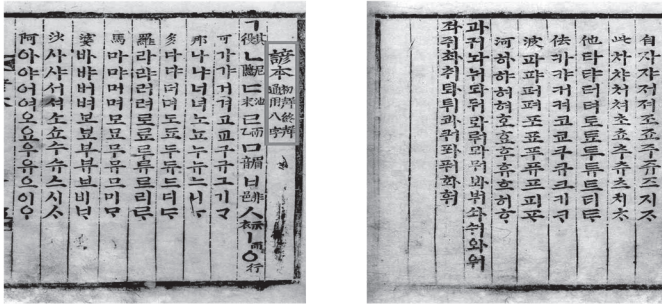 諺本 初聲終聲通用八字
ㄱ ㄴ ㄷ ㄹ ㅁ ㅂ ㅅ ㅣ ㅇ行
可가갸거겨고교구규그기ᄀᆞ
那나냐너녀노뇨누뉴느니ᄂᆞ
多다댜더뎌도됴두듀드디ᄃᆞ
羅라랴러려로료루류르리ᄅᆞ
馬마먀머며모묘무뮤므미ᄆᆞ
婆바뱌버벼보뵤부뷰브비ᄇᆞ
沙사샤서셔소쇼수슈스시ᄉᆞ
阿아야어여오요우유으이ᄋᆞ
自자쟈저져조죠주쥬즈지ᄌᆞ
此차챠처쳐초쵸추츄츠치ᄎᆞ
他타탸터텨토툐투튜트티ᄐᆞ
佉카캬커켜코쿄쿠큐크키ᄏᆞ
波파퍄퍼펴포표푸퓨프피ᄑᆞ
河하햐허혀호효후휴흐히ᄒᆞ
과궈놔눠돠둬롸뤄뫄뭐봐붜솨숴와워
좌줘촤춰톼퉈콰쿼퐈풔화훠